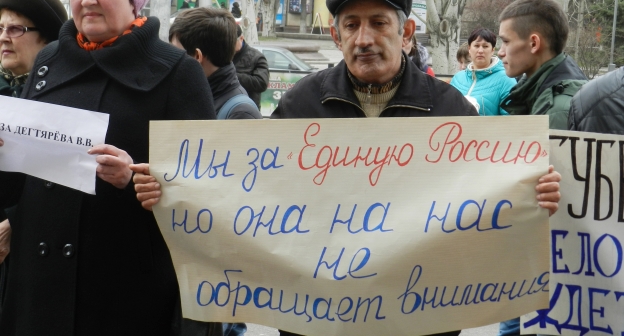 ЗА ДЕГТЯРЁВА В.В.
Мы за "Единую Россию"
но она на нас
не
обращает внимания
ГУБЕ
ЕЛО
ЖДЕТ